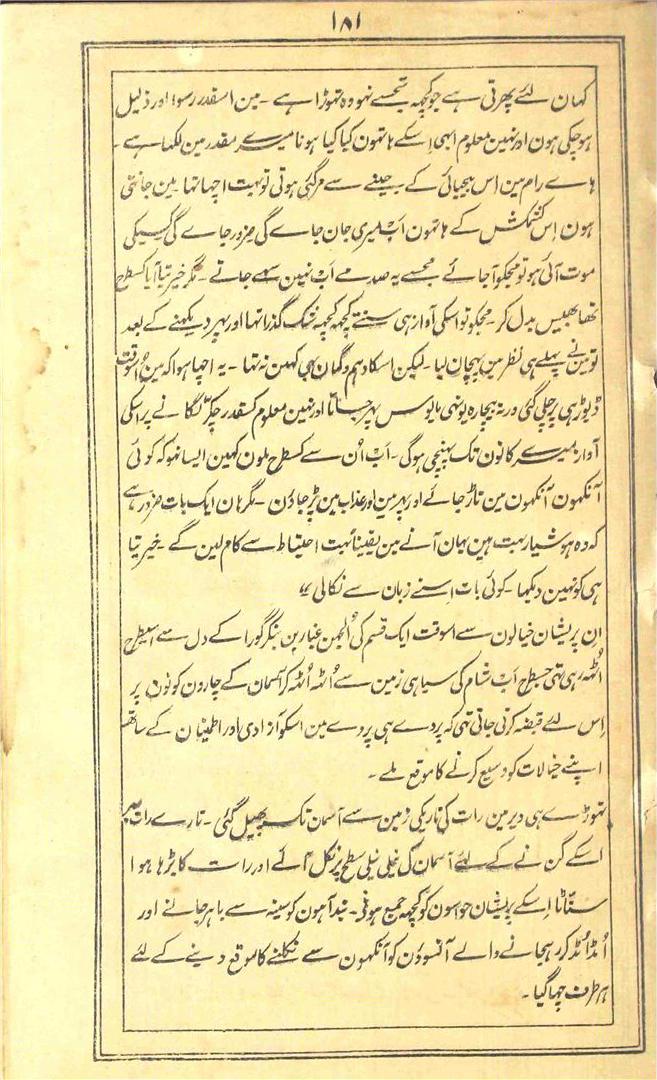 ۱۸۱
کہان لئے پھرتی ہے جو کچھہ تجھسے نہو وہ تھوڑا ہے ۔ مین اسقدر رسوا اور ذلیل
ہو چکی ہون اور نہین معلوم ابھی اِسکے ہاتھون کیا کیا ہونا میرے مقدر مین لکھا ہے ۔
ہاے رام مین اس بیحیائی کے جینے سے مر گئی ہوتی تو بہت اچھا تھا مین جانتی
ہون اِس کشمکش کے ہاتھون اَب میری جان جاے گی ضرور جاے گی کسیکی
موت آئی ہو تو مجکو آ جائے مجھسے یہ صدمے اَب نہین سہے جاتے ۔ مگر خیر تیا آیا کسطرح
تھا بھیس بدل کر ۔ مجکو تو اسکی آواز ہی سنتے کچھہ کچھہ شک گذرا تھا اور پھر دیکھنے کے بعد
تو مین نے پہلے ہی نظر مین پہچان لیا ۔ لیکن اسکا وہم و گمان بھی کہین نہ تھا ۔ یہ اچھا ہوا کہ مین اُسوقت
ڈیوڑھی پر چلی گئی ورنہ بیچارہ یونہی مایوس پھر جاتا اور نہین معلوم کسقدر چکر لگانے پر اسکی
آواز میرے کانون تک پہنچی ہوگی ۔ اَب اُن سے کسطرح ملون کہین ایسا نہو کہ کوئی
آنکھون آنکھون مین تاڑ جائے اور پھر مین اور عذاب مین پڑ جاؤن ۔ مگر ہان ایک بات ضرور ہے
کہ وہ ہوشیار بہت ہین یہان آنے مین یقیناً بہت احتیاط سے کام لین گے ۔ خیر تیا
ہی کو نہین دیکھا ۔ کوئی بات اسنے زبان سے نکالی"
اِن پریشان خیالون سے اسوقت ایک قسم کی اُلجھن غبار بن بنکر گورا کے دل سے اسیطرح
اُٹھہ رہی تھی جسطرح اَب شام کی سیاہی زمین سے اُٹھہ اُٹھہ کر آسمان کے چارون کونون پر
اِس لئے قبضہ کرتی جاتی تھی کہ پردے ہی پردے مین اسکو آزادی اور اطمینان کے ساتھہ
اپنے خیالات کو وسیع کرنے کا موقع ملے ۔
تھوڑے ہی دیر مین رات کی تاریکی زمین سے آسمان تک پھیل گئی ۔ تارے رات بھر
اسکے گننے کے لئے آسمان کی نیلی نیلی سطح پر نکل آئے اور رات کا بڑھا ہوا
سنّاٹا اِسکے پریشان حواسون کو کچھہ جمع ہونے ۔ بند آہون کو سینہ سے باہر جانے اور
اُمڈ اُمڈ کر رہجانے والے آنسوؤن کو آنکھون سے نکلنے کا موقع دینے کے لئے
ہر طرف چھا گیا ۔